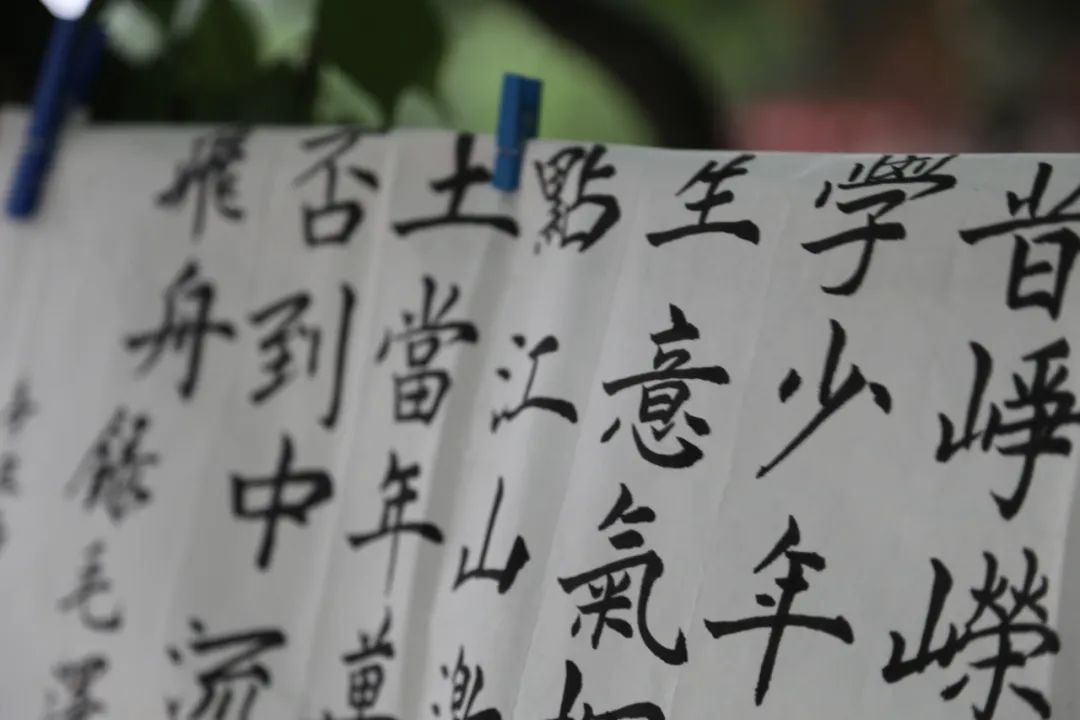 昔崢嶸
學少年
生意氣
點江山激
土當年萬
否到中流
飛舟錄毛澤